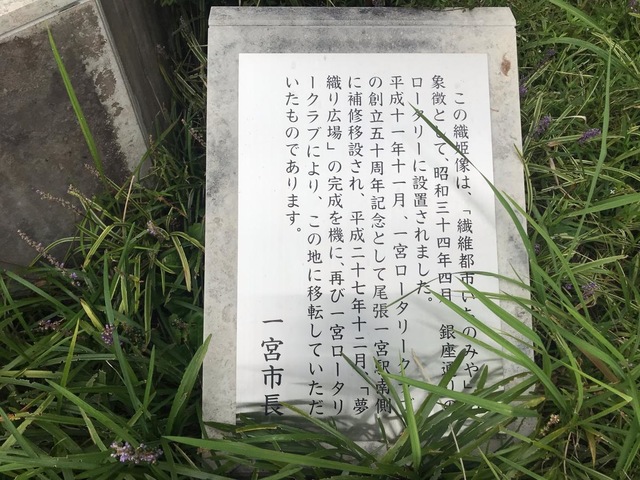 この織姫像は、「繊維都市いちのみや」の
象徴として、昭和三十四年四月、銀座通りの
ロータリーに設置されました。
平成十一年十一月、一宮ロータリークラブ
の創立五十周年記念として尾張一宮駅南側
に補修移設され、平成二十七年十二月、「夢
織り広場」の完成を機に、再び一宮ロータリ
ークラブにより、この地に移転していただ
いたものであります。
一宮市長